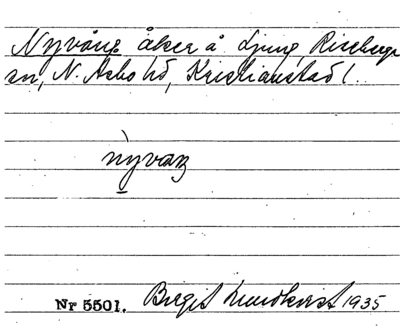 Nyvång åker å Ljung, Riseberga
sn, N. Åsbo hd, Kristianstad l.
nỳvaŋ
Nr 5501. Birgit Lundkvist 1935